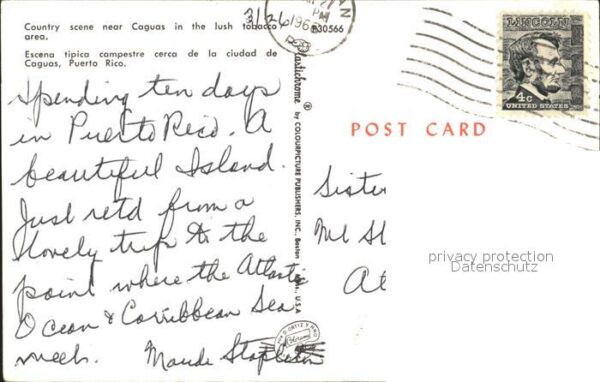 Country scene near Caguas in the lush tobacco
area.
Escena tipica campestre cerca de la ciudad de
Caguas, Puerto Rico.
3/26
PM
196
P30566
LINCOLN
4c
UNITED STATES
Plastichrome ®
by COLOURPICTURE PUBLISHERS, INC., Boston, U.S.A
POST CARD
Spending ten days
in Puerto Rico. A
beautiful Island.
Just retd from a
lovely trip to the
point where the Atlantic
Ocean & Carribbean Sea
meet. Maude Stapleton
Sister
Mt St
At
privacy protection
Datenschutz